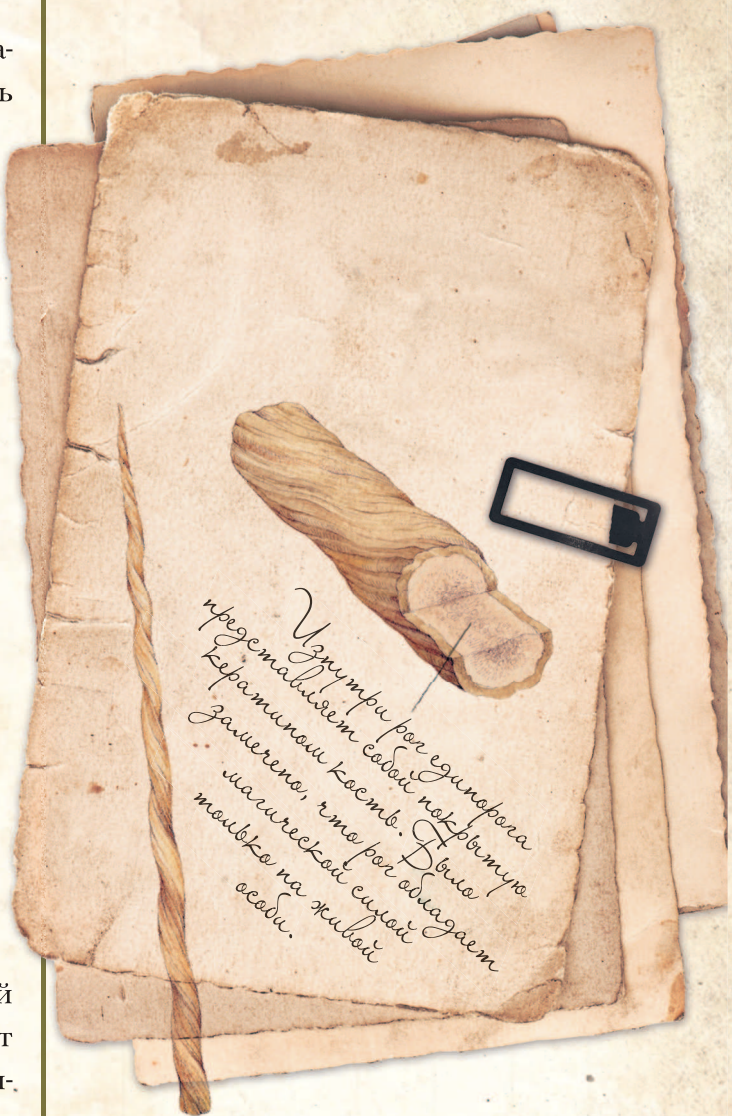 а-
ь
Изнутри рог единорога
представляет собой покрытую
кератином кость. Было
замечено, что рог обладает
магической силой
только на живой
особи.
й
т